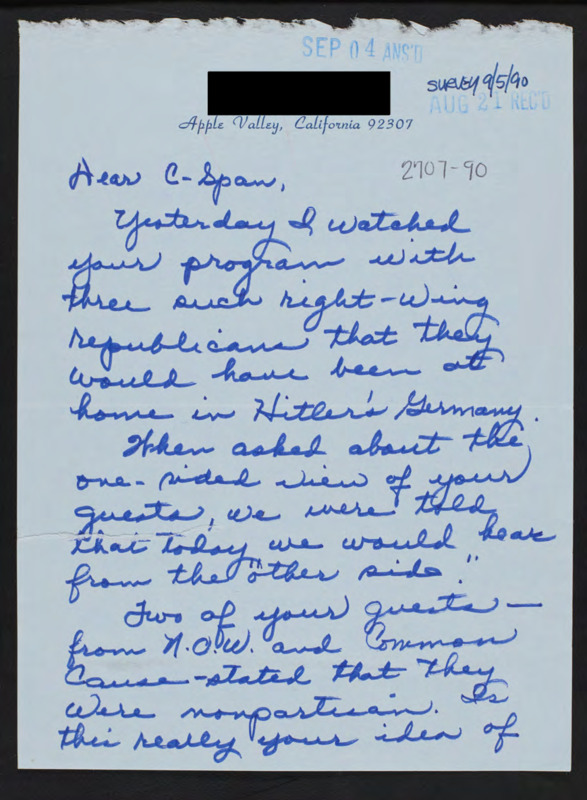 SEP 04 ANS'D
SURVEY 9/5/90
AUG 21 REC'D
Apple Valley, California 92307
2707-90
Dear C-Span,
Yesterday I watched
your program with
three such right-wing
republicans that they
would have been at
home in Hitler's Germany.
When asked about the
one-sided view of your
guests, we were told
that today we would hear
from the "other side".
Two of your guests—
from N.O.W. and Common
Cause-stated that they
were nonpartisan. Is
this really your idea of